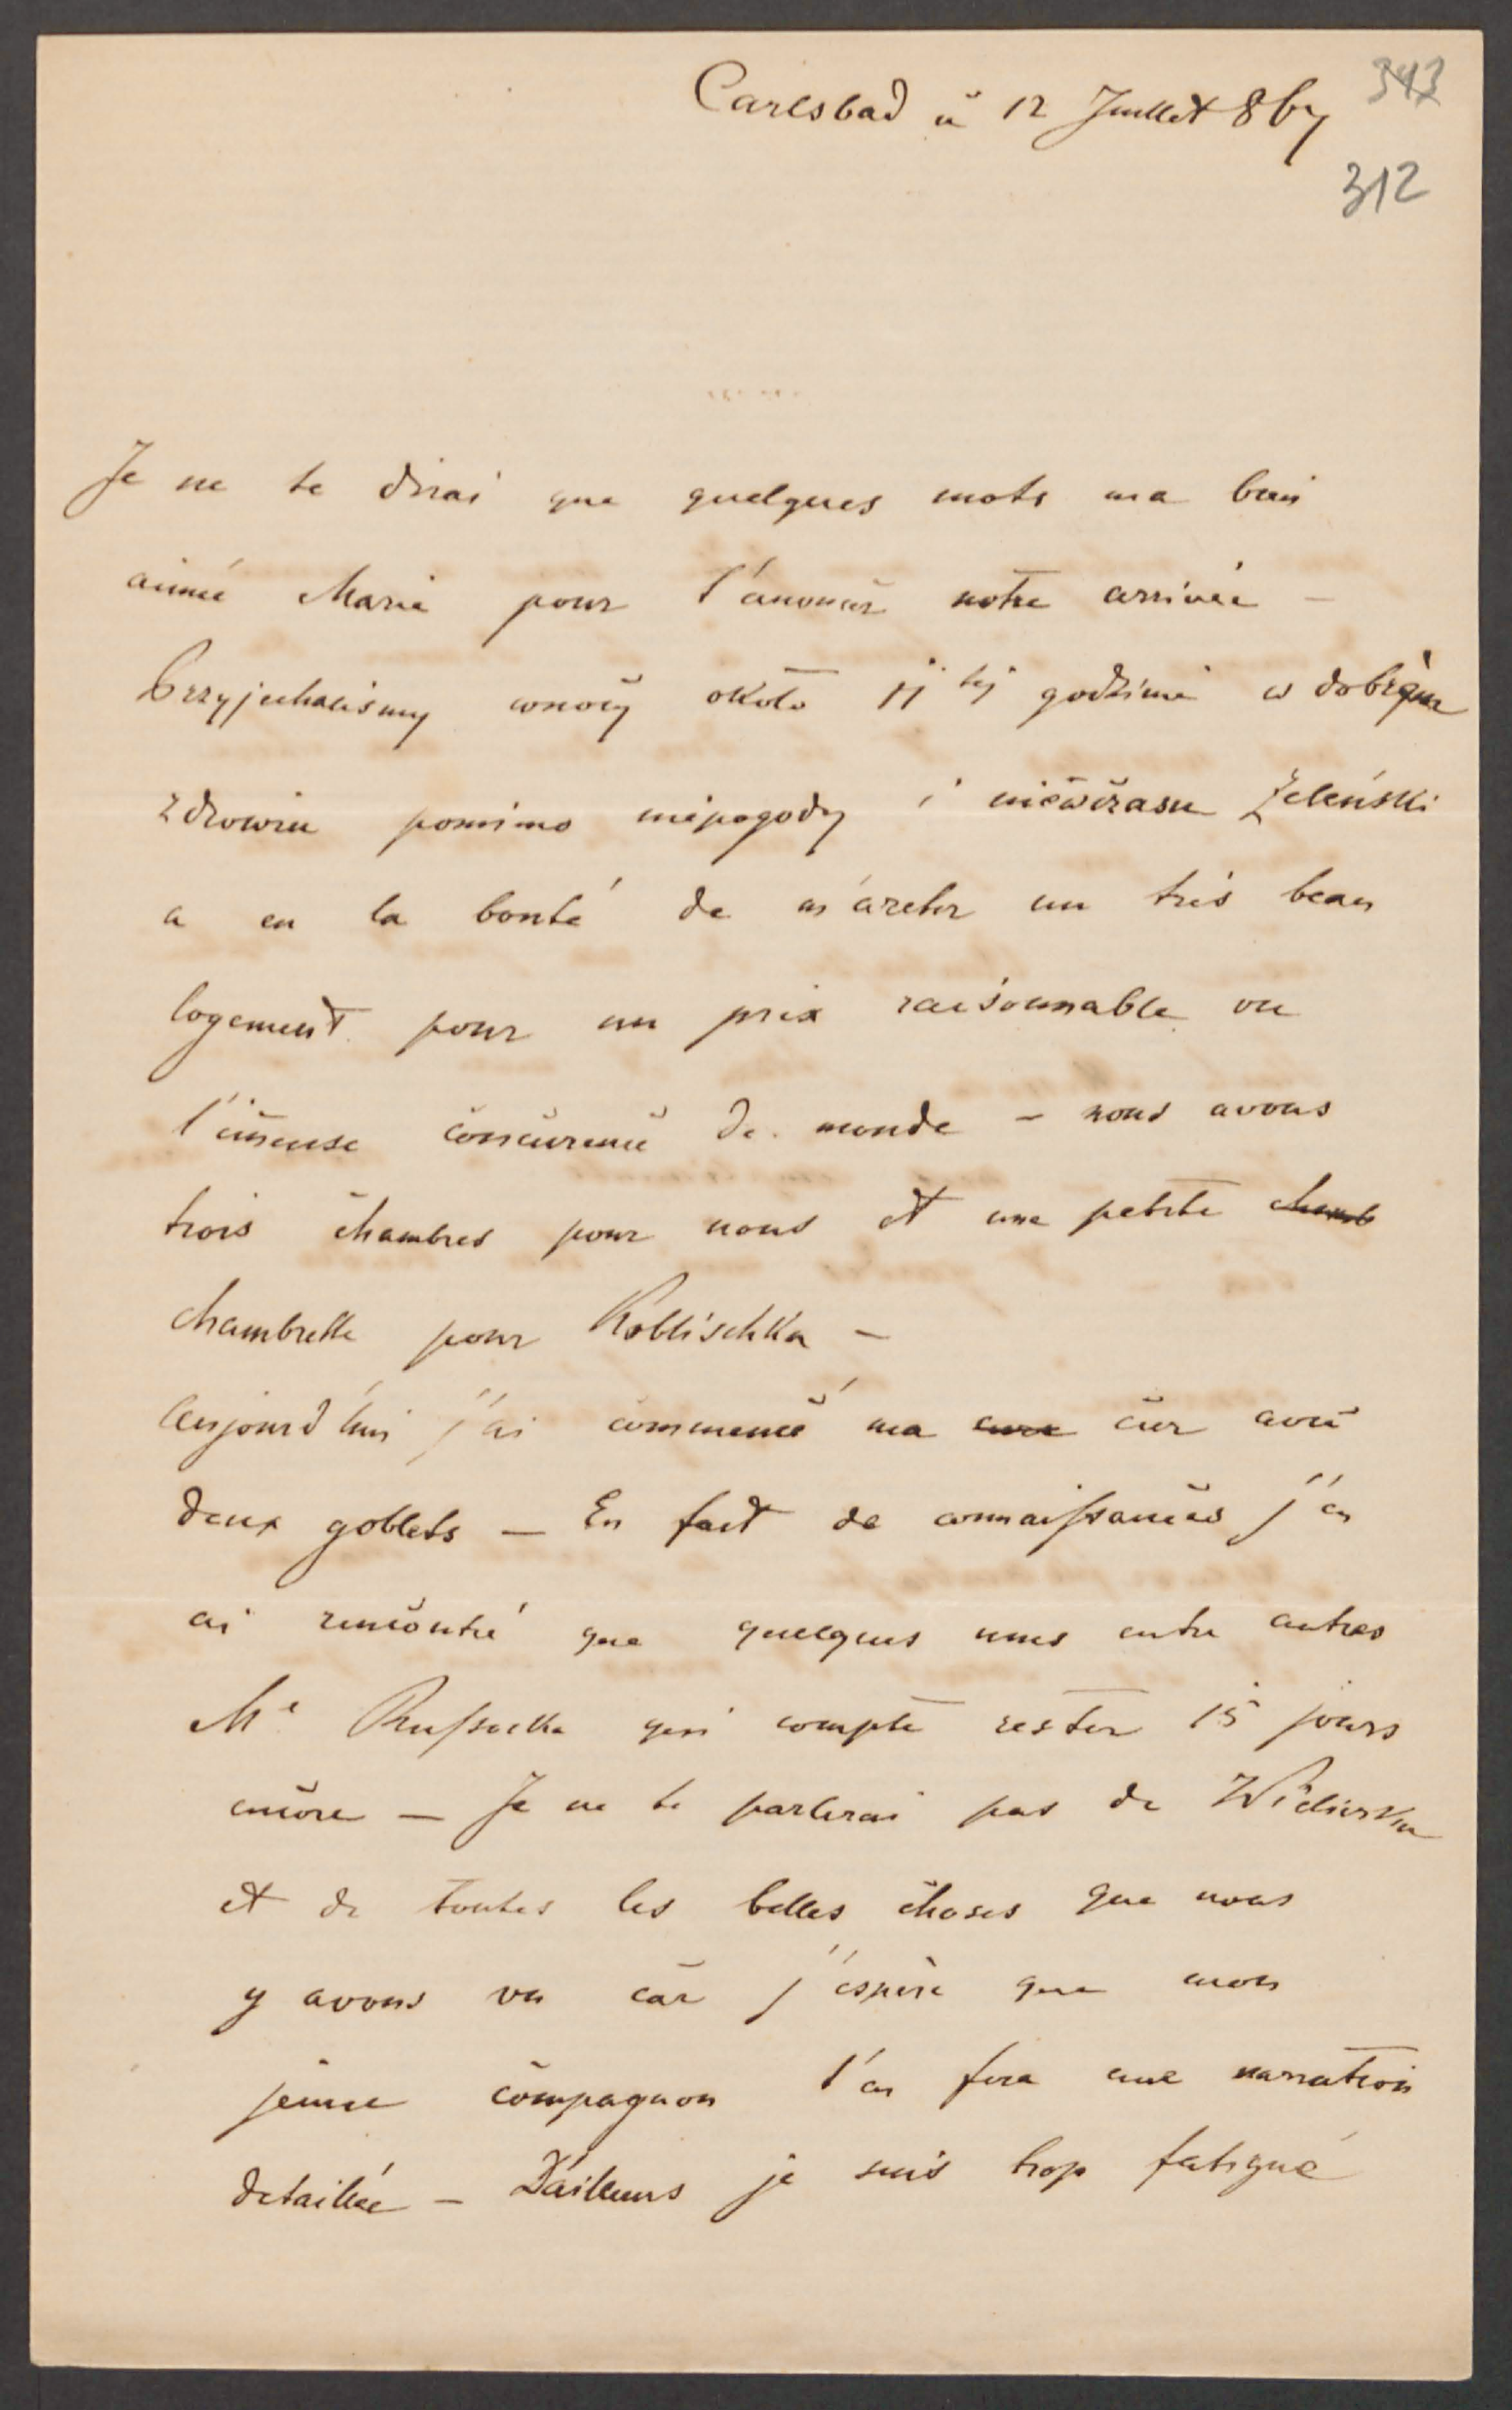 Carlsbad à 12 Juillet 867
343
312
Je ne te dirai que quelques mots ma bien
aimée Marie pour t'anoncer notre arrivée –
Przyjechaliśmy wnocy około 11 tej godzinie w dobrym
zdrowiu pomimo niepogody i niewczasu Zeleński
a eu la bonté de m'areter un très beau
logement pour un prix raisonnable vu
l'imense concurence de monde – nous avons
trois chambres pour nous et une petite chamb
chambrette pour Koblischka –
Aujourd'hui j'ai commencé ma cure cur avec
deux goblets – En fait de connaissances j'en
ai rencontré que quelques unes entre autres
Me Russocka qui compte rester 15 jours
encore – Je ne te parlerai pas de
et de toutes les belles choses que nous
y avons vu car j'éspère que mon
jeune compagnon t'en fera une narration
detaillée – D'ailleurs je suis trop fatigué